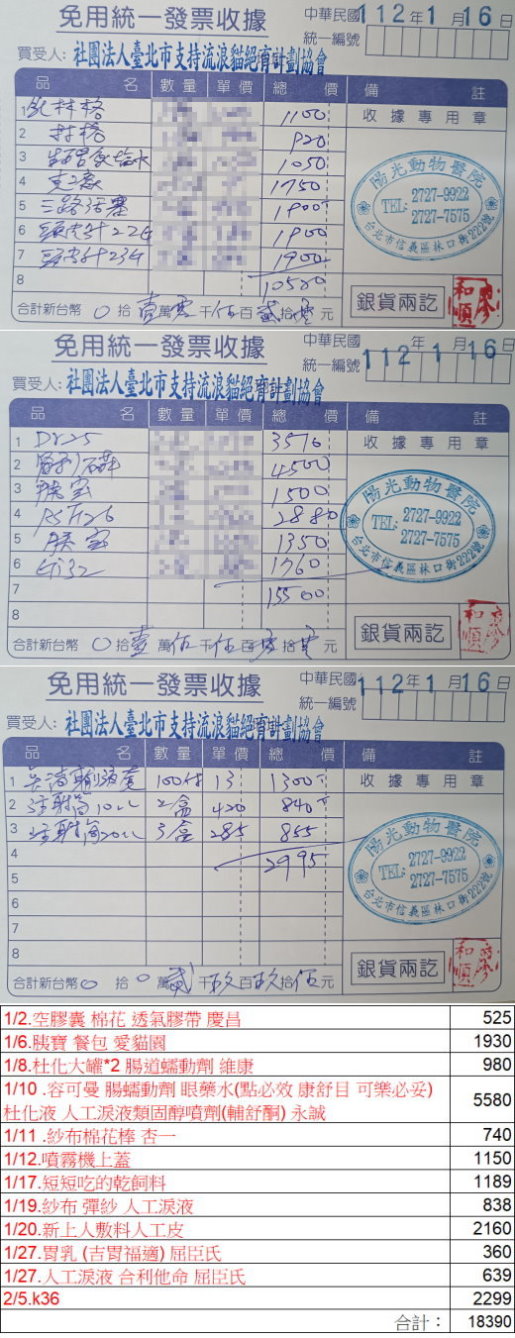 免用統一發票收據
中華民國112年1月16日
統一編號
買受人: 社團法人臺北市支持流浪貓絕育計劃協會
品名 數量 單價 總價 備註
1 林格 1100 收據專用章
2 林格 920
3 生理食塩水 1050
4 1750
5 三路活塞 1800
6 頭皮針22G 1900
7 頭皮針23G 1900
8 10520
陽光動物醫院
TEL: 2727-9922
2727-7575
台北市信義區林口街222號
銀貨兩訖
合計新台幣 0拾壹萬零千伍百貳拾零元
免用統一發票收據
中華民國112年1月16日
統一編號
買受人: 社團法人臺北市支持流浪貓絕育計劃協會
品名 數量 單價 總價 備註
1 3576 收據專用章
2 4500
3 胰宝 1500
4 2880
5 胰宝 1350
6 1760
7 15500
8
陽光動物醫院
TEL: 2727-9922
2727-7575
台北市信義區林口街222號
銀貨兩訖
合計新台幣 0拾壹萬伍千伍百零拾零元
免用統一發票收據
中華民國112年1月16日
統一編號
買受人: 社團法人臺北市支持流浪貓絕育計劃協會
品名 數量 單價 總價 備註
1 100付 13 1300 收據專用章
2 注射筒10cc 2盒 420 840
3 注射筒20cc 3盒 285 855
4 2995
5
6
7
8
陽光動物醫院
TEL: 2727-9922
2727-7575
台北市信義區林口街222號
銀貨兩訖
合計新台幣0拾0萬貳千玖百玖拾伍元
1/2.空膠囊 棉花 透氣膠帶 慶昌 525
1/6.胰寶 餐包 愛貓園 1930
1/8.杜化大罐*2 腸道蠕動劑 維康 980
1/10 .容可曼 腸蠕動劑 眼藥水(點必效 康舒目 可樂必妥)
杜化液 人工淚液類固醇噴劑(輔舒酮) 永誠 5580
1/11 .紗布棉花棒 杏一 740
1/12.噴霧機上蓋 1150
1/17.短短吃的乾飼料 1189
1/19.紗布 彈紗 人工淚液 838
1/20.新上人敷料人工皮 2160
1/27.胃乳 (吉胃福適) 屈臣氏 360
1/27.人工淚液 合利他命 屈臣氏 639
2/5.k36 2299
合計： 18390